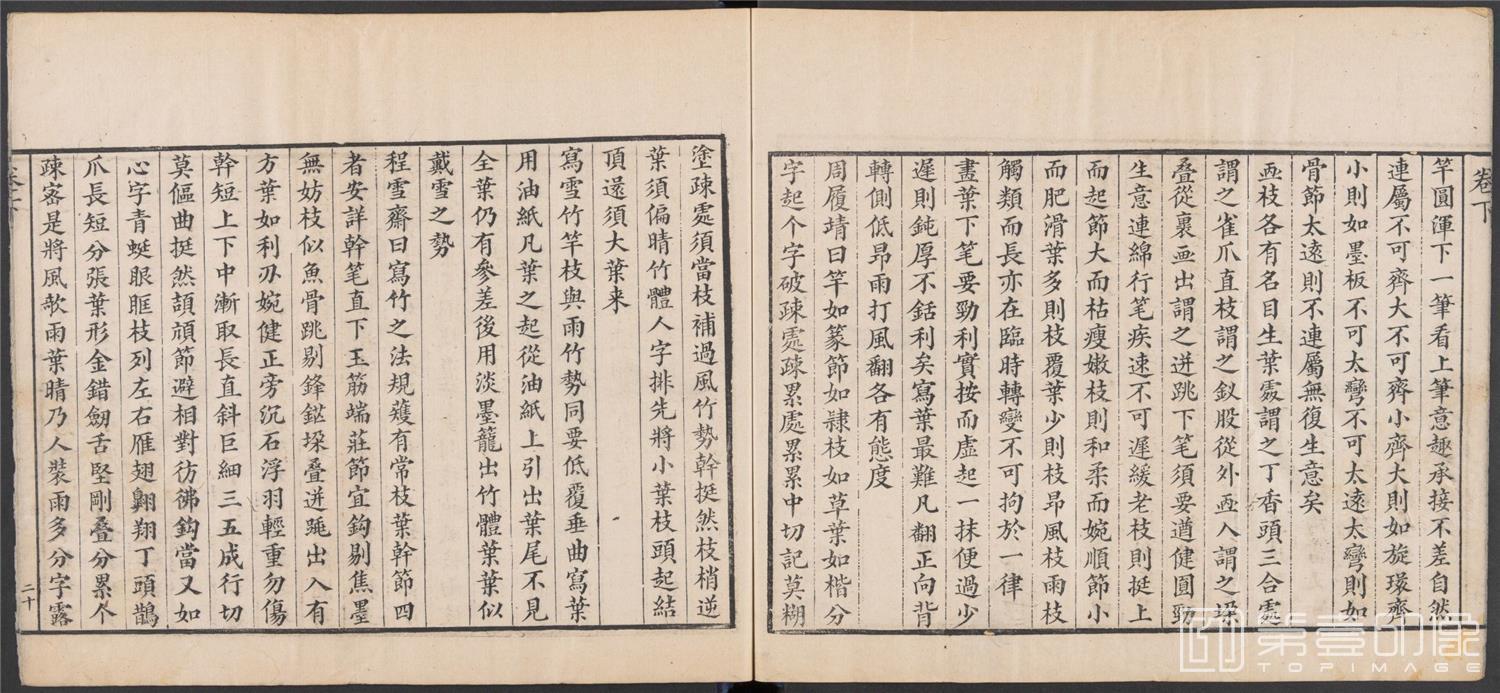 卷下
竿圓渾下一筆看上筆意趣承接不差自然
連屬不可齊大不可齊小齊大則如旋環齊
小則如墨板不可太彎不可太遠太彎則如
骨節太遠則不連屬無復生意矣
画枝各有名目生葉處謂之丁香頭三合處
謂之雀爪直枝謂之釵股從外画入謂之垜
叠從裏画出謂之迸跳下笔須要遒健圓勁
生意連綿行笔疾速不可遲緩老枝則挺上
而起節大而枯瘦嫩枝則和柔而婉順節小
而肥滑葉多則枝覆葉少則枝昂風枝雨枝
觸類而長亦在臨時轉變不可拘於一律
畫葉下笔要勁利實按而虛起一抹便過少
遲則鈍厚不銛利矣寫葉最難凡翻正向背
轉側低昂雨打風翻各有態度
周履靖曰竿如篆節如隸枝如草葉如楷分
字起个字破疎處疎累處累累中切記莫糊
塗疎處須當枝補過風竹勢幹挺然枝梢逆
葉須偏晴竹體人字排先將小葉枝頭起結
頂還須大葉来
寫雪竹竿枝與雨竹勢同要低覆垂曲寫葉
用油紙凡葉之起從油紙上引出葉尾不見
全葉仍有參差後用淡墨籠出竹體葉葉似
戴雪之勢
程雪齋曰寫竹之法規蒦有常枝葉幹節四
者安詳幹笔直下玉筋端莊節宜鈎剔焦墨
無妨枝似魚骨跳剔鋒鋩垜叠迸踊出入有
方葉如利刃婉健正旁沉石浮羽輕重勿傷
幹短上下中漸取長直斜巨細三五成行切
莫傴曲挺然頡頏節避相對彷彿鈎當又如
心字青蜓眼眶枝列左右雁翅翱翔丁頭鵲
爪長短分張葉形金錯劒舌堅剛叠分累个
疎宻是將風欹雨葉晴乃人裝雨多分字露
二十
第壹印象
TOPIMAGE